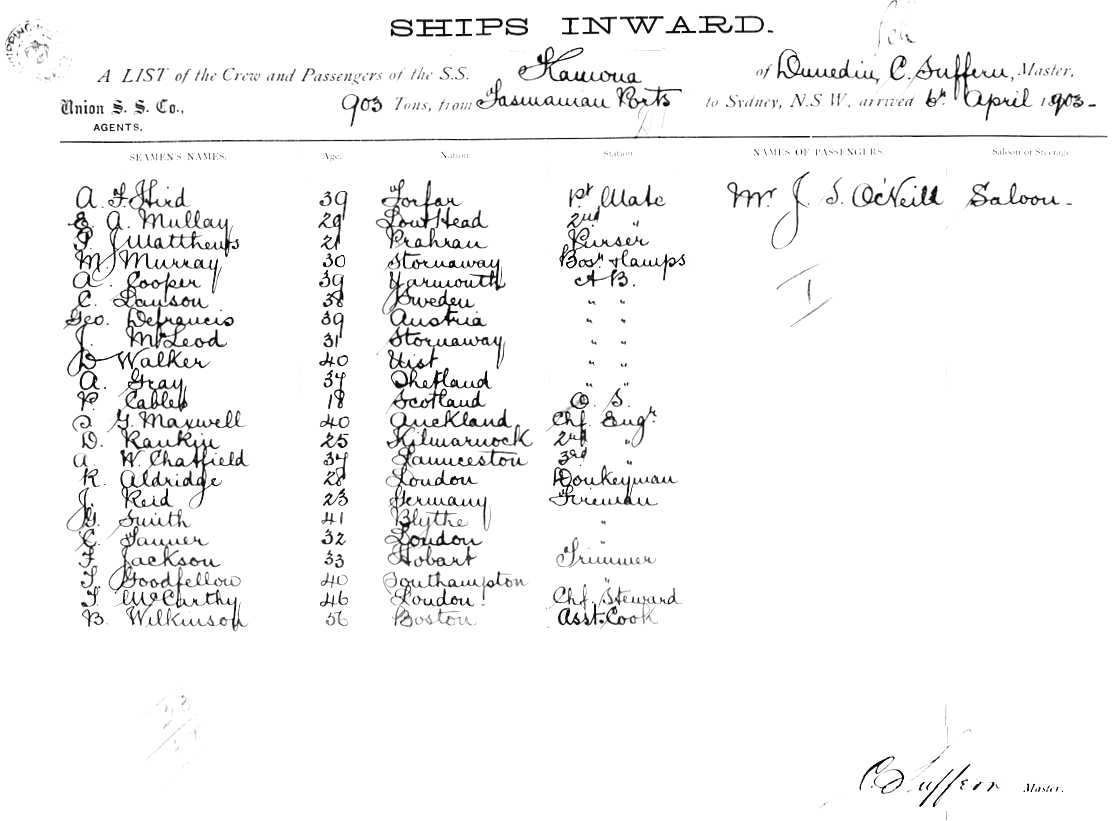 SHIPS INWARD.
A LIST of the Crew and Passengers of the S.S. Kamona of Dunedin, C. Suffern, Master,
Union S. S. Co., 903 Tons, from Tasmanian Ports to Sydney, N.S.W., arrived 6th April 1903-
AGENTS,
SEAMEN'S NAMES. Age. Nation. Station. NAMES OF PASSENGERS. Saloon or Steerage.
A. F. Hird 39 Forfar 1st Mate Mr J. S. O'Neill Saloon -
E. A. Mullay 29 Low Head 2nd "
P. J Matthews 21 Prahran Purser
M. Murray 30 Stornaway Bosn & Lamps
A. Cooper 39 Yarmouth A B.
C. Lawson 38 Sweden " "
Geo. Defrancis 39 Austria " "
J. McLeod 31 Stornaway " "
D Walker 40 Uist " "
A. Gray 34 Shetland " "
P. Cables 18 Scotland O. S.
G. Maxwell 40 Auckland Chf. Engr
D. Rankin 25 Kilmarnock 2nd "
A W. Chatfield 34 Launceston 3rd "
R. Aldridge 28 London Donkeyman
J. Reid 23 Germany Fireman
G. Smith 41 Blythe "
C. Tanner 32 London "
F. Jackson 33 Hobart Trimmer
T. Goodfellow 40 Southampton "
T McCarthy 46 London. Chf. Steward
B. Wilkinson 56 Boston Asst. Cook
C. Suffern Master.